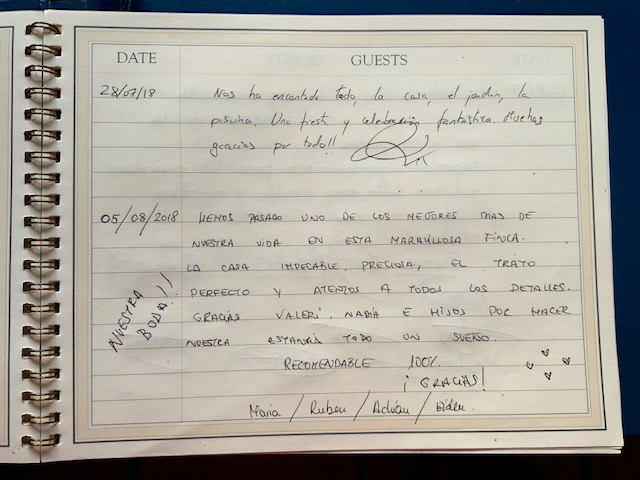 DATE GUESTS
28/07/18 Nos ha encantado todo, la casa, el jardin, la
piscina. Una fiesta y celebración fantástica. Muchas
gracias por todo!!
05/08/2018 HEMOS PASADO UNO DE LOS MEJORES DIAS DE
NUESTRA VIDA EN ESTA MARAVILLOSA FINCA.
LA CASA IMPECABLE, PRECIOSA, EL TRATO
PERFECTO Y ATENTOS A TODOS LOS DETALLES.
GRACIAS VALERI, NADIA E HIJOS POR HACER
NUESTRA ESTANCIA TODO UN SUEÑO.
NUESTRA
BODA!!
RECOMENDABLE 100%.
¡GRACIAS!
Maria / Ruben / Adrián /